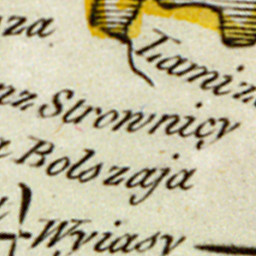 za
Lamiz
nz Strownicy
a Bolszaja
Wyiasy